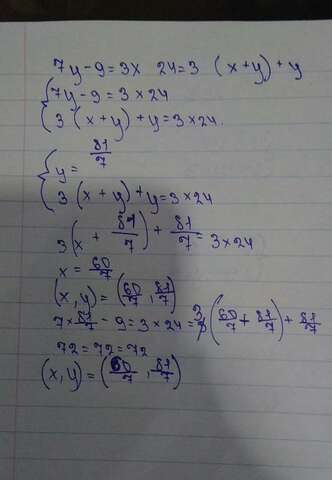 7y-9=3x 24=3 (x+y)+y
{7y-9=3×24
3 (x+y)+y=3×24.
{y=81/7
3 (x+y)+y=3×24
3(x+81/7)+81/7=3×24
x=60/7
(x,y)=(60/7,81/7)
7×81/7-9=3×24=3(60/7+81/7)+81/7
72=72=72
(x,y)=(60/7,81/7)